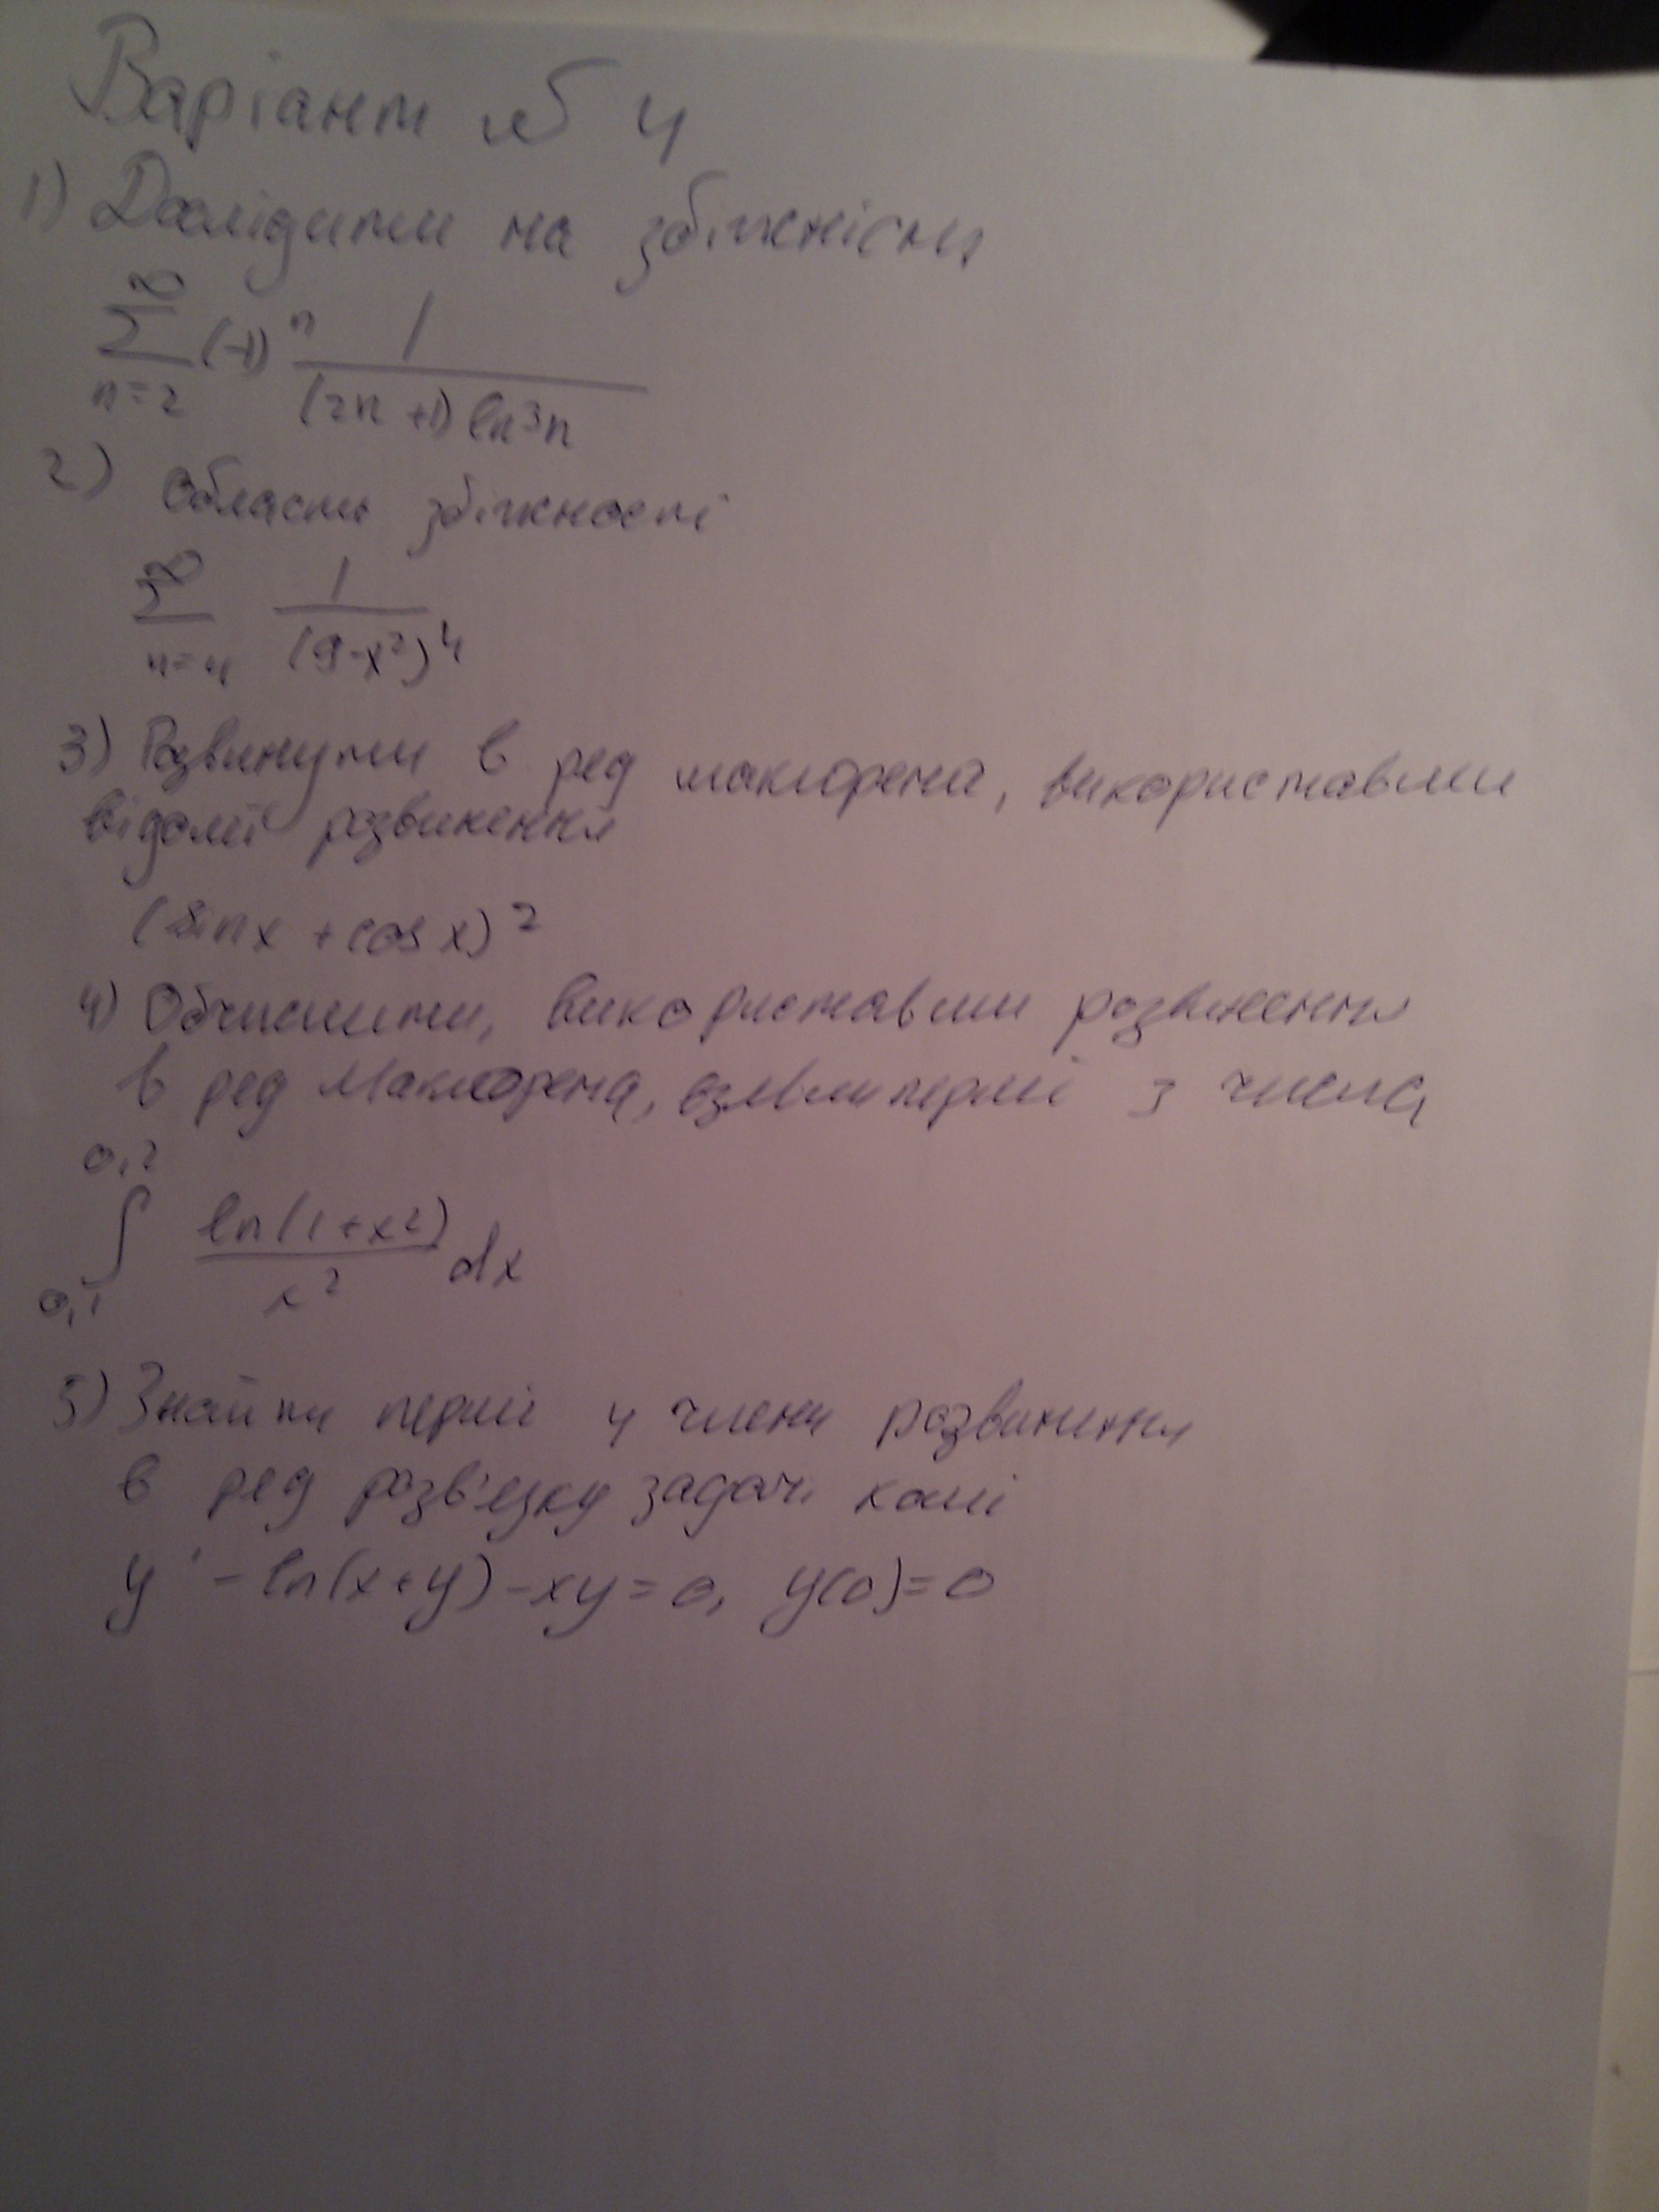 Варіант № 4
1) Дослідити на збіжність
∞
Σ (-1)ⁿ 1
n=2 (2n+1) ln³n
2) Область збіжності
∞
Σ 1
n=4 (9-x²)⁴
3) Розвинути в ряд маклорена, використавши
відомі розвинення
(sinx + cos x)²
4) Обчислити, використавши розвинення
в ряд Маклорена, взявши перші 3 числа
0,2
∫ ln(1+x²) dx
0,1 x²
5) Знайти перші 4 члени розвинення
в ряд розв'язку задачі коші
y' - ln(x+y) - xy = 0, y(0) = 0